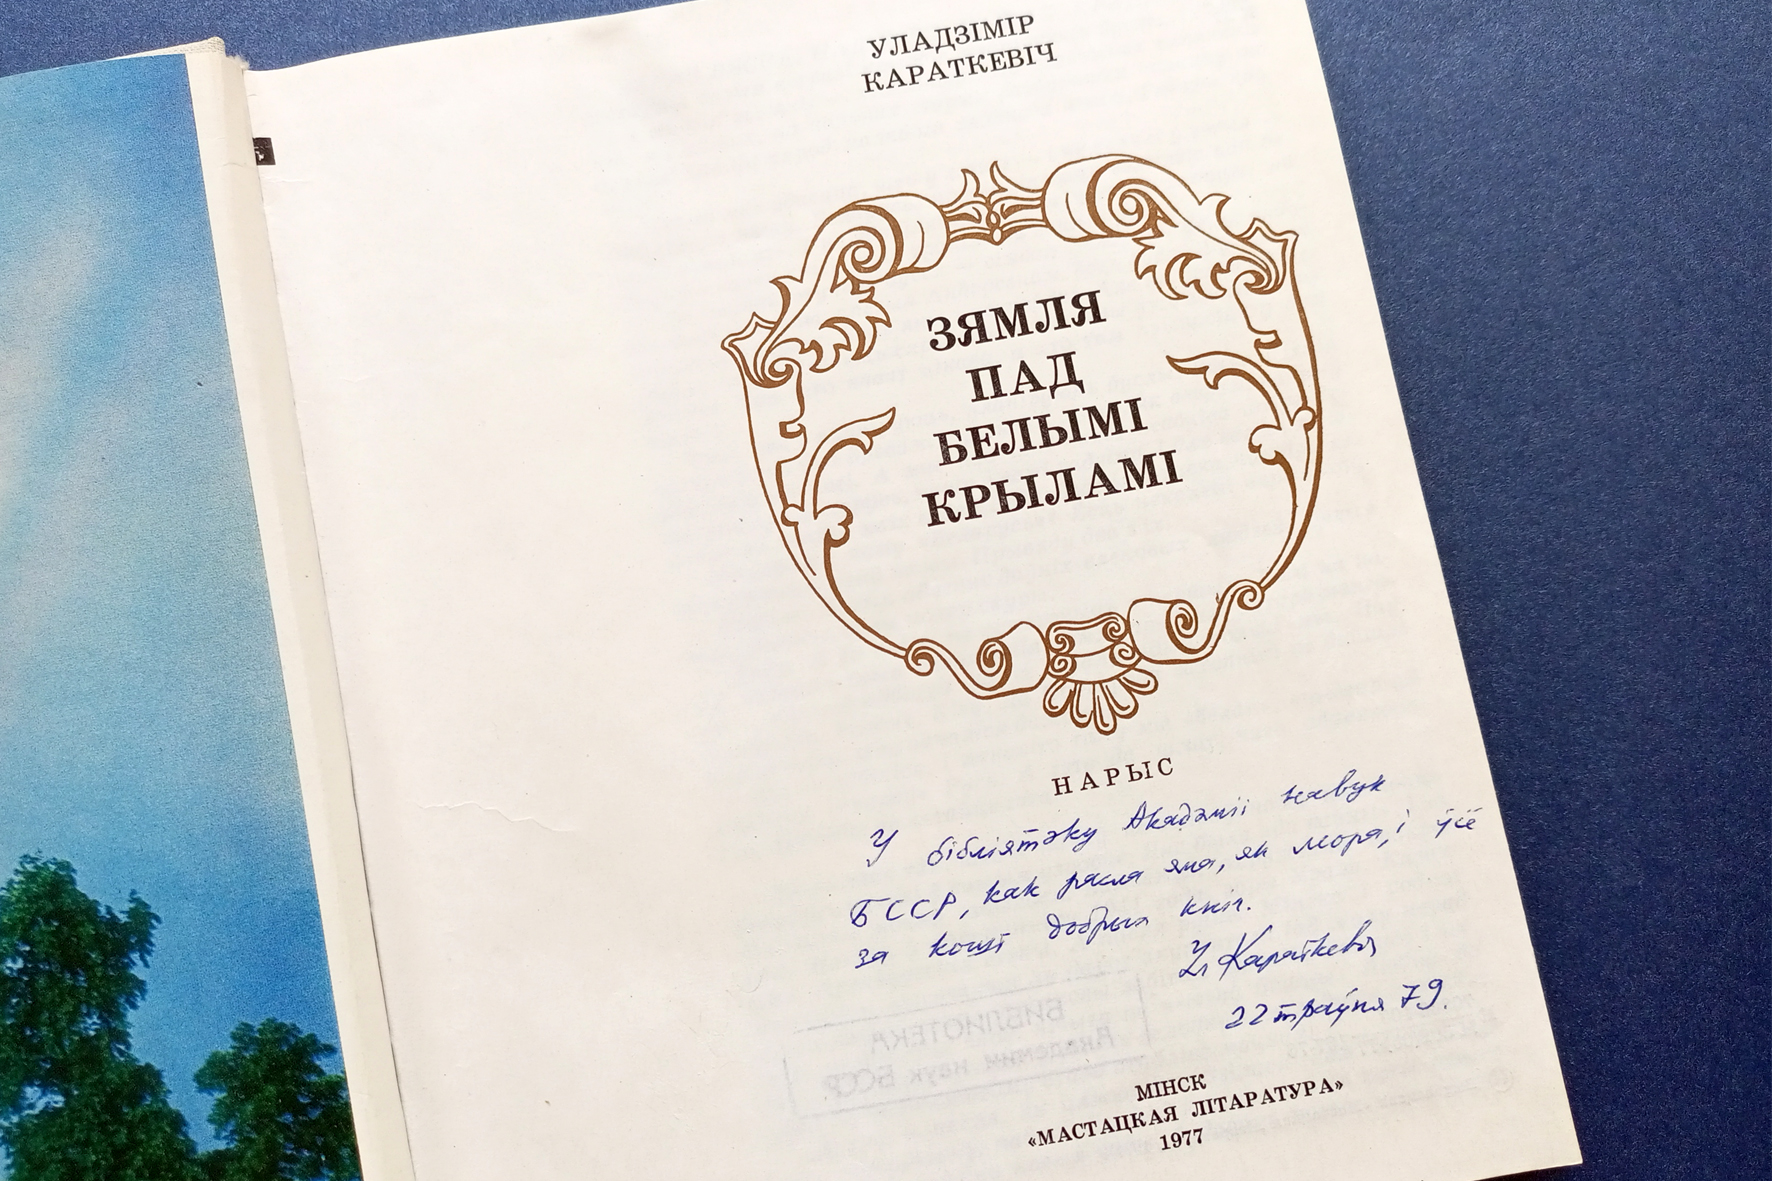 УЛАДЗІМІР
КАРАТКЕВІЧ
ЗЯМЛЯ
ПАД
БЕЛЫМІ
КРЫЛАМІ
НАРЫС
У бібліятэку Акадэміі навук
БССР, каб расла яна, як мора, і ўсё
за кошт добрых кніг.
Ул Караткевіч
22 траўня 79.
БИБЛИОТЕКА
Академии наук БССР
МІНСК
«МАСТАЦКАЯ ЛІТАРАТУРА»
1977